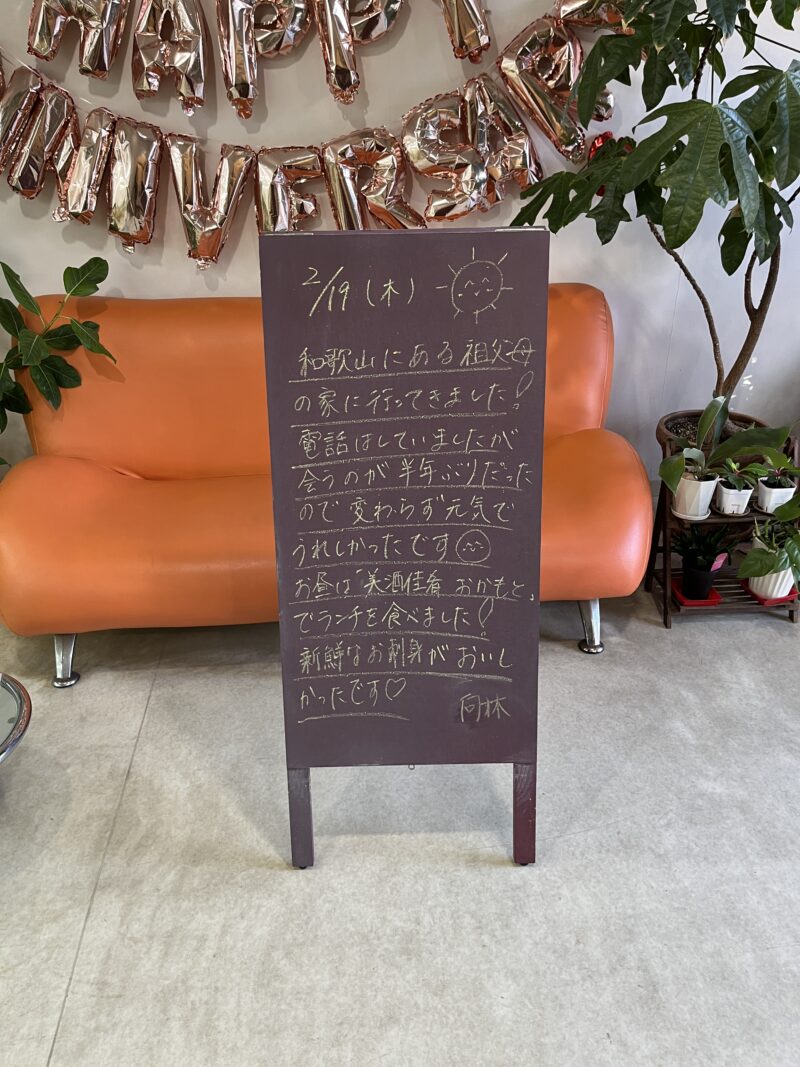 HAPPY
ANNIVERSAR
2/19(木)
和歌山にある祖父母
の家に行ってきました!
電話はしていましたが
会うのが半年ぶりだった
ので変わらず元気で
うれしかったです
お昼は「美酒佳肴 おかもと」
でランチを食べました!
新鮮なお刺身がおいし
かったです♡
向林